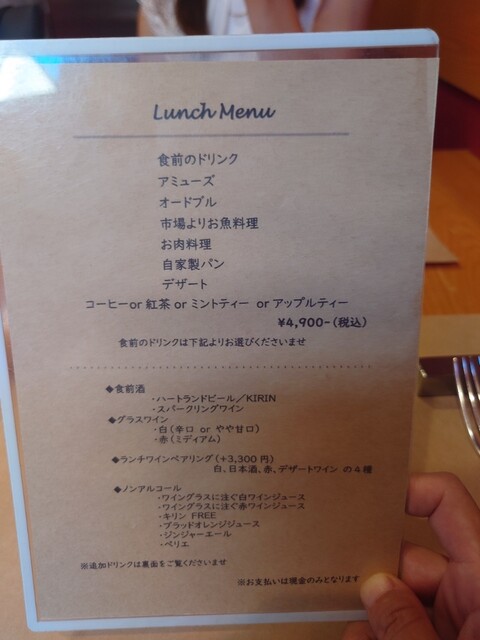 Lunch Menu
食前のドリンク
アミューズ
オードブル
市場よりお魚料理
お肉料理
自家製パン
デザート
コーヒーor 紅茶 or ミントティー or アップルティー
¥4,900-(税込)
食前のドリンクは下記よりお選びくださいませ
◆食前酒
・ハートランドビール／KIRIN
・スパークリングワイン
◆グラスワイン
・白(辛口 or やや甘口)
・赤(ミディアム)
◆ランチワインペアリング(+3,300円)
白、日本酒、赤、デザートワイン の4種
◆ノンアルコール
・ワイングラスに注ぐ白ワインジュース
・ワイングラスに注ぐ赤ワインジュース
・キリン FREE
・ブラッドオレンジジュース
・ジンジャーエール
・ペリエ
※追加ドリンクは裏面をご覧くださいませ
※お支払いは現金のみとなります